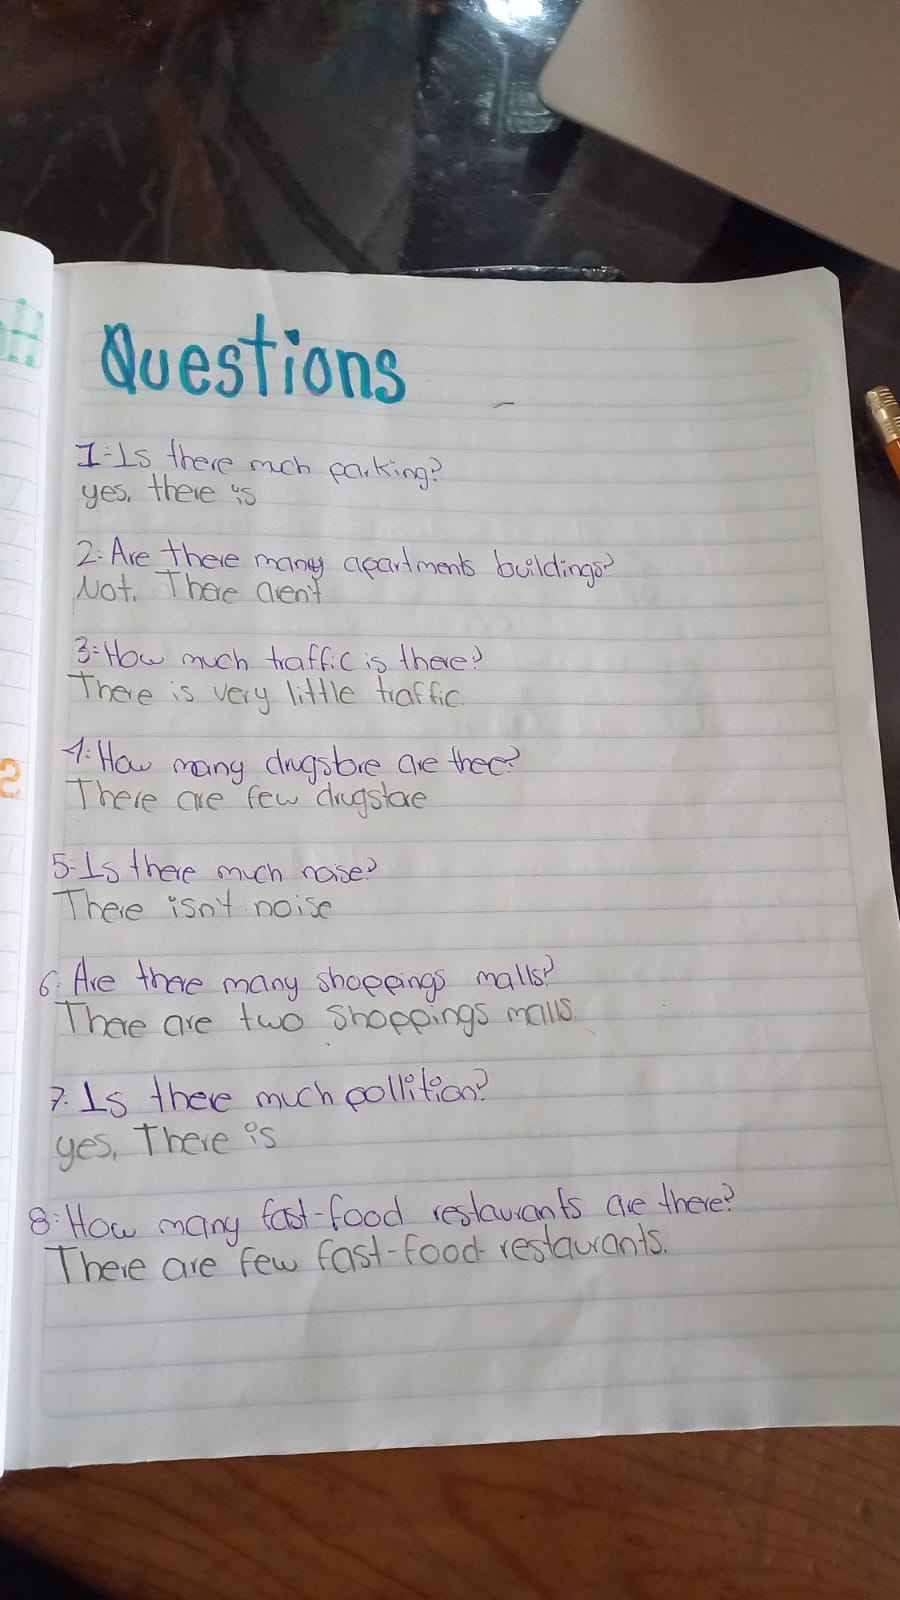 Questions
1-Is there much parking?
yes, there is
2-Are there many apartments buildings?
Not. There aren't
3-How much traffic is there?
There is very little traffic.
4-How many drugstore are there?
There are few drugstore
5-Is there much noise?
There isn't noise
6. Are there many shoppings malls?
There are two shoppings malls.
7. Is there much pollition?
yes, There is
8-How many fast-food restaurants are there?
There are few fast-food restaurants.
2